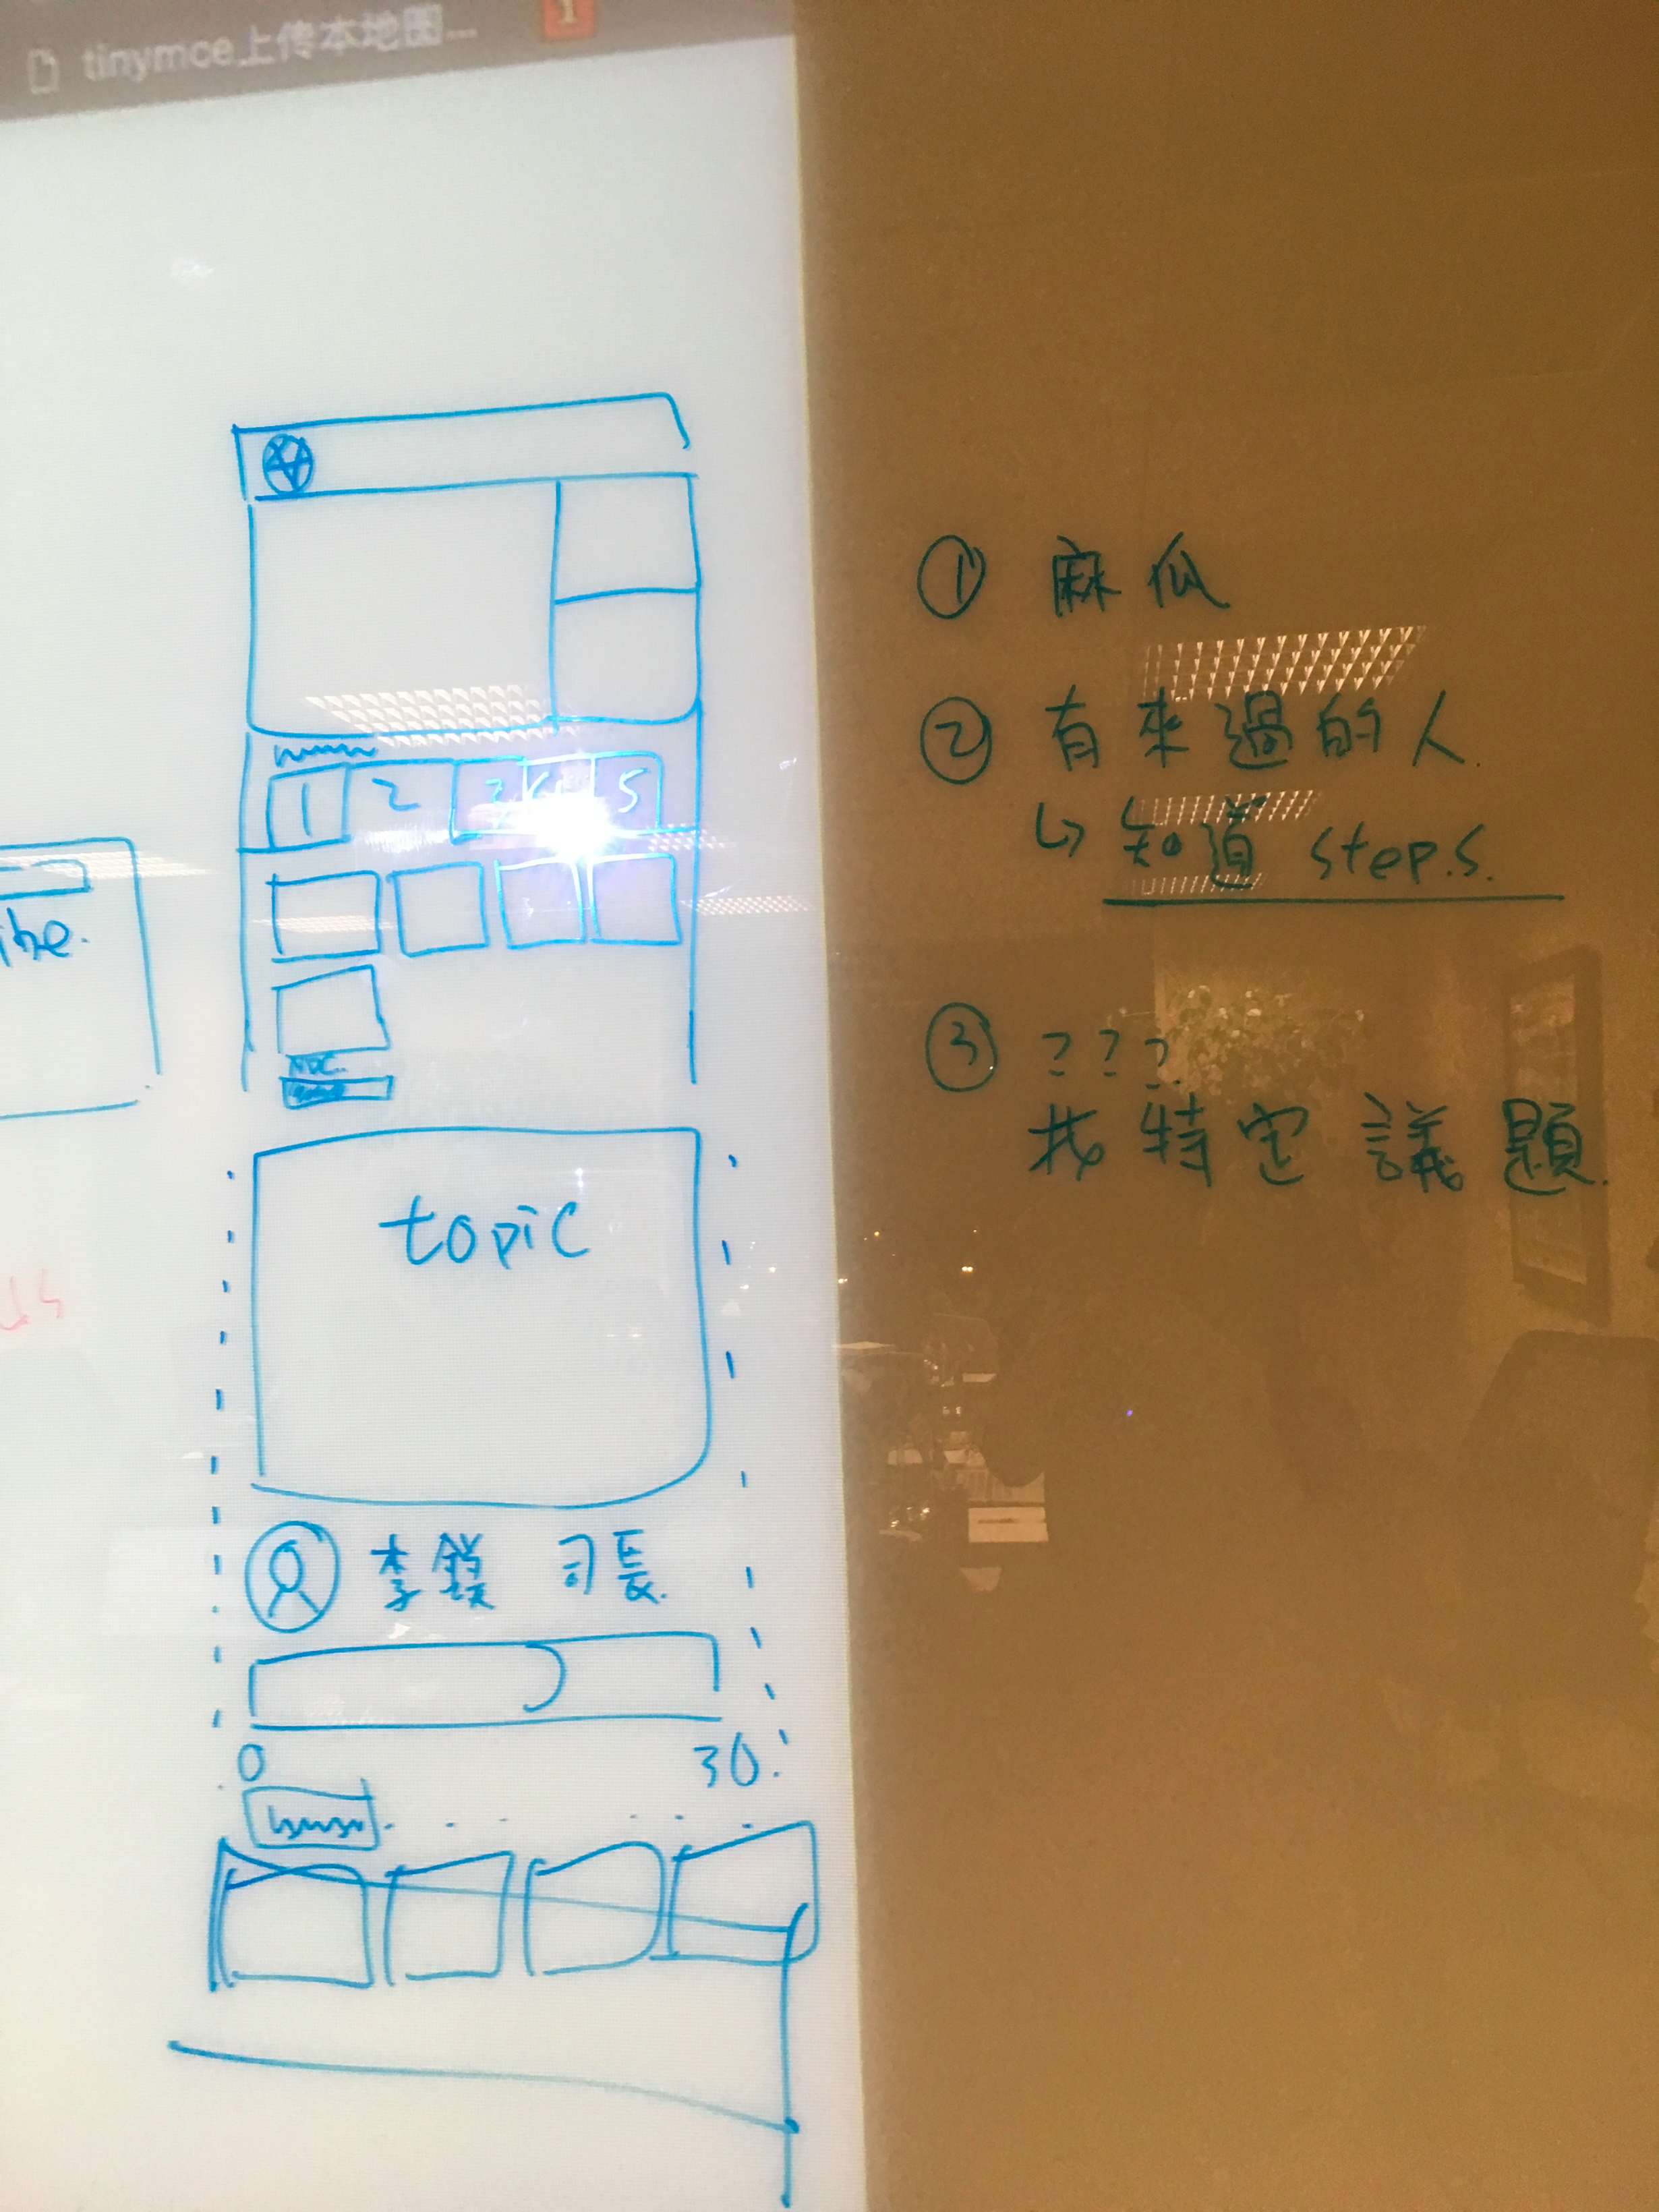 tinymce上传本地图...
1
1 2 3 4 5
topic
李鎂 司長.
0 30.
① 麻瓜
② 有來過的人.
↳ 知道 steps.
③ ???
找特定議題.